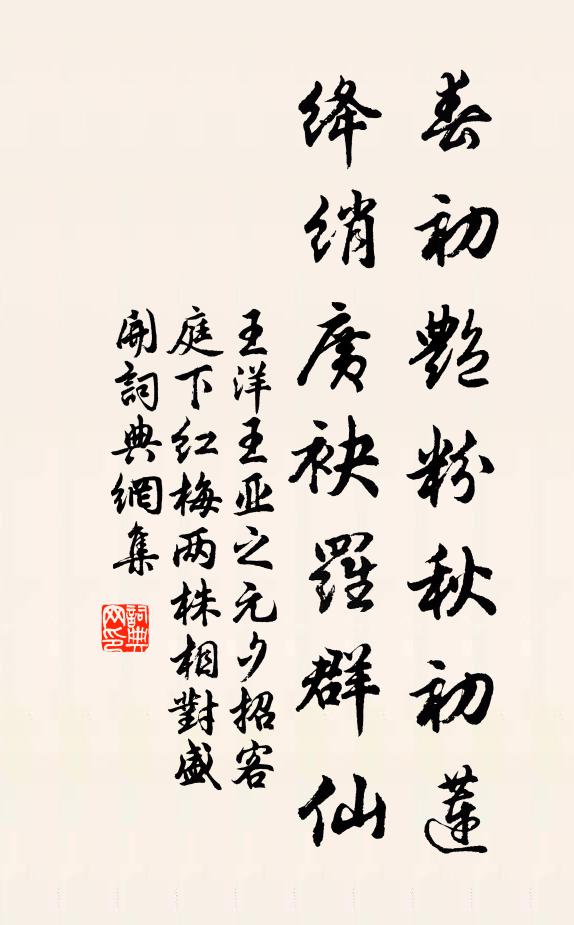 春初艳粉秋初蓮
绛绡廣袂羅群仙
王洋王亚之元夕招客
庭下红梅两株相對盛
開詞典網集
詞典
网印